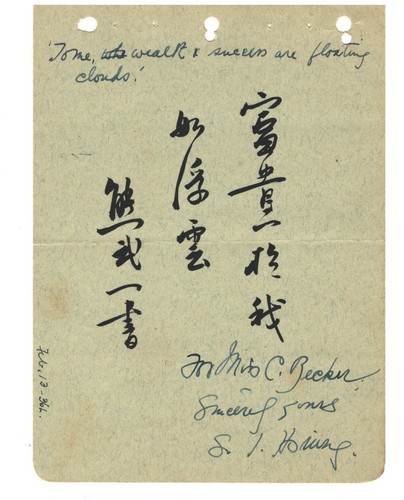 'To me, wealth & success are floating
clouds.'
富貴於我
如浮雲
熊式一書
For Miss C. Becker.
Sincerely yours
S. I. Hsiung.